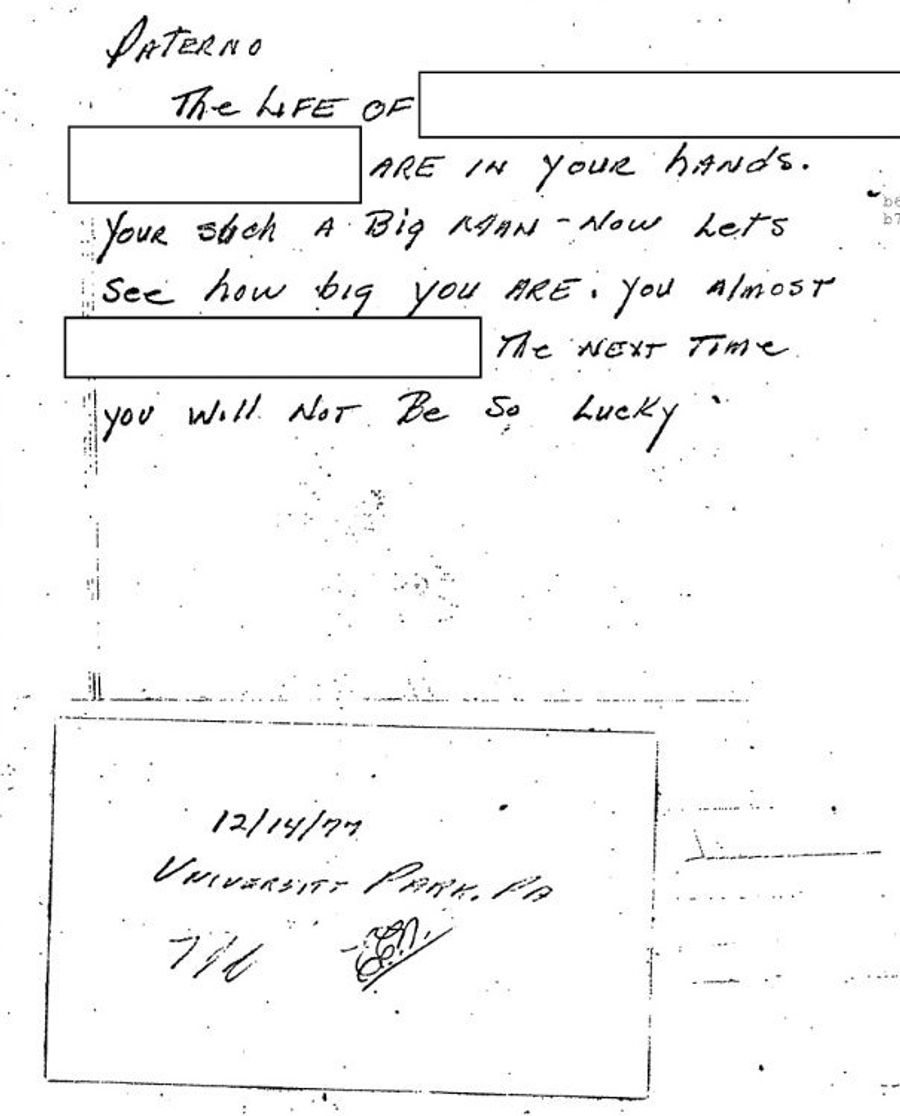 PATERNO
The LIFE OF
ARE IN YOUR hANDS.
YOUR such A Big MAN - Now Lets
See how big you ARE. You Almost
The NEXT Time
you Will Not Be So Lucky
b6
b7
12/14/77
UNIVERSITY PARK, PA